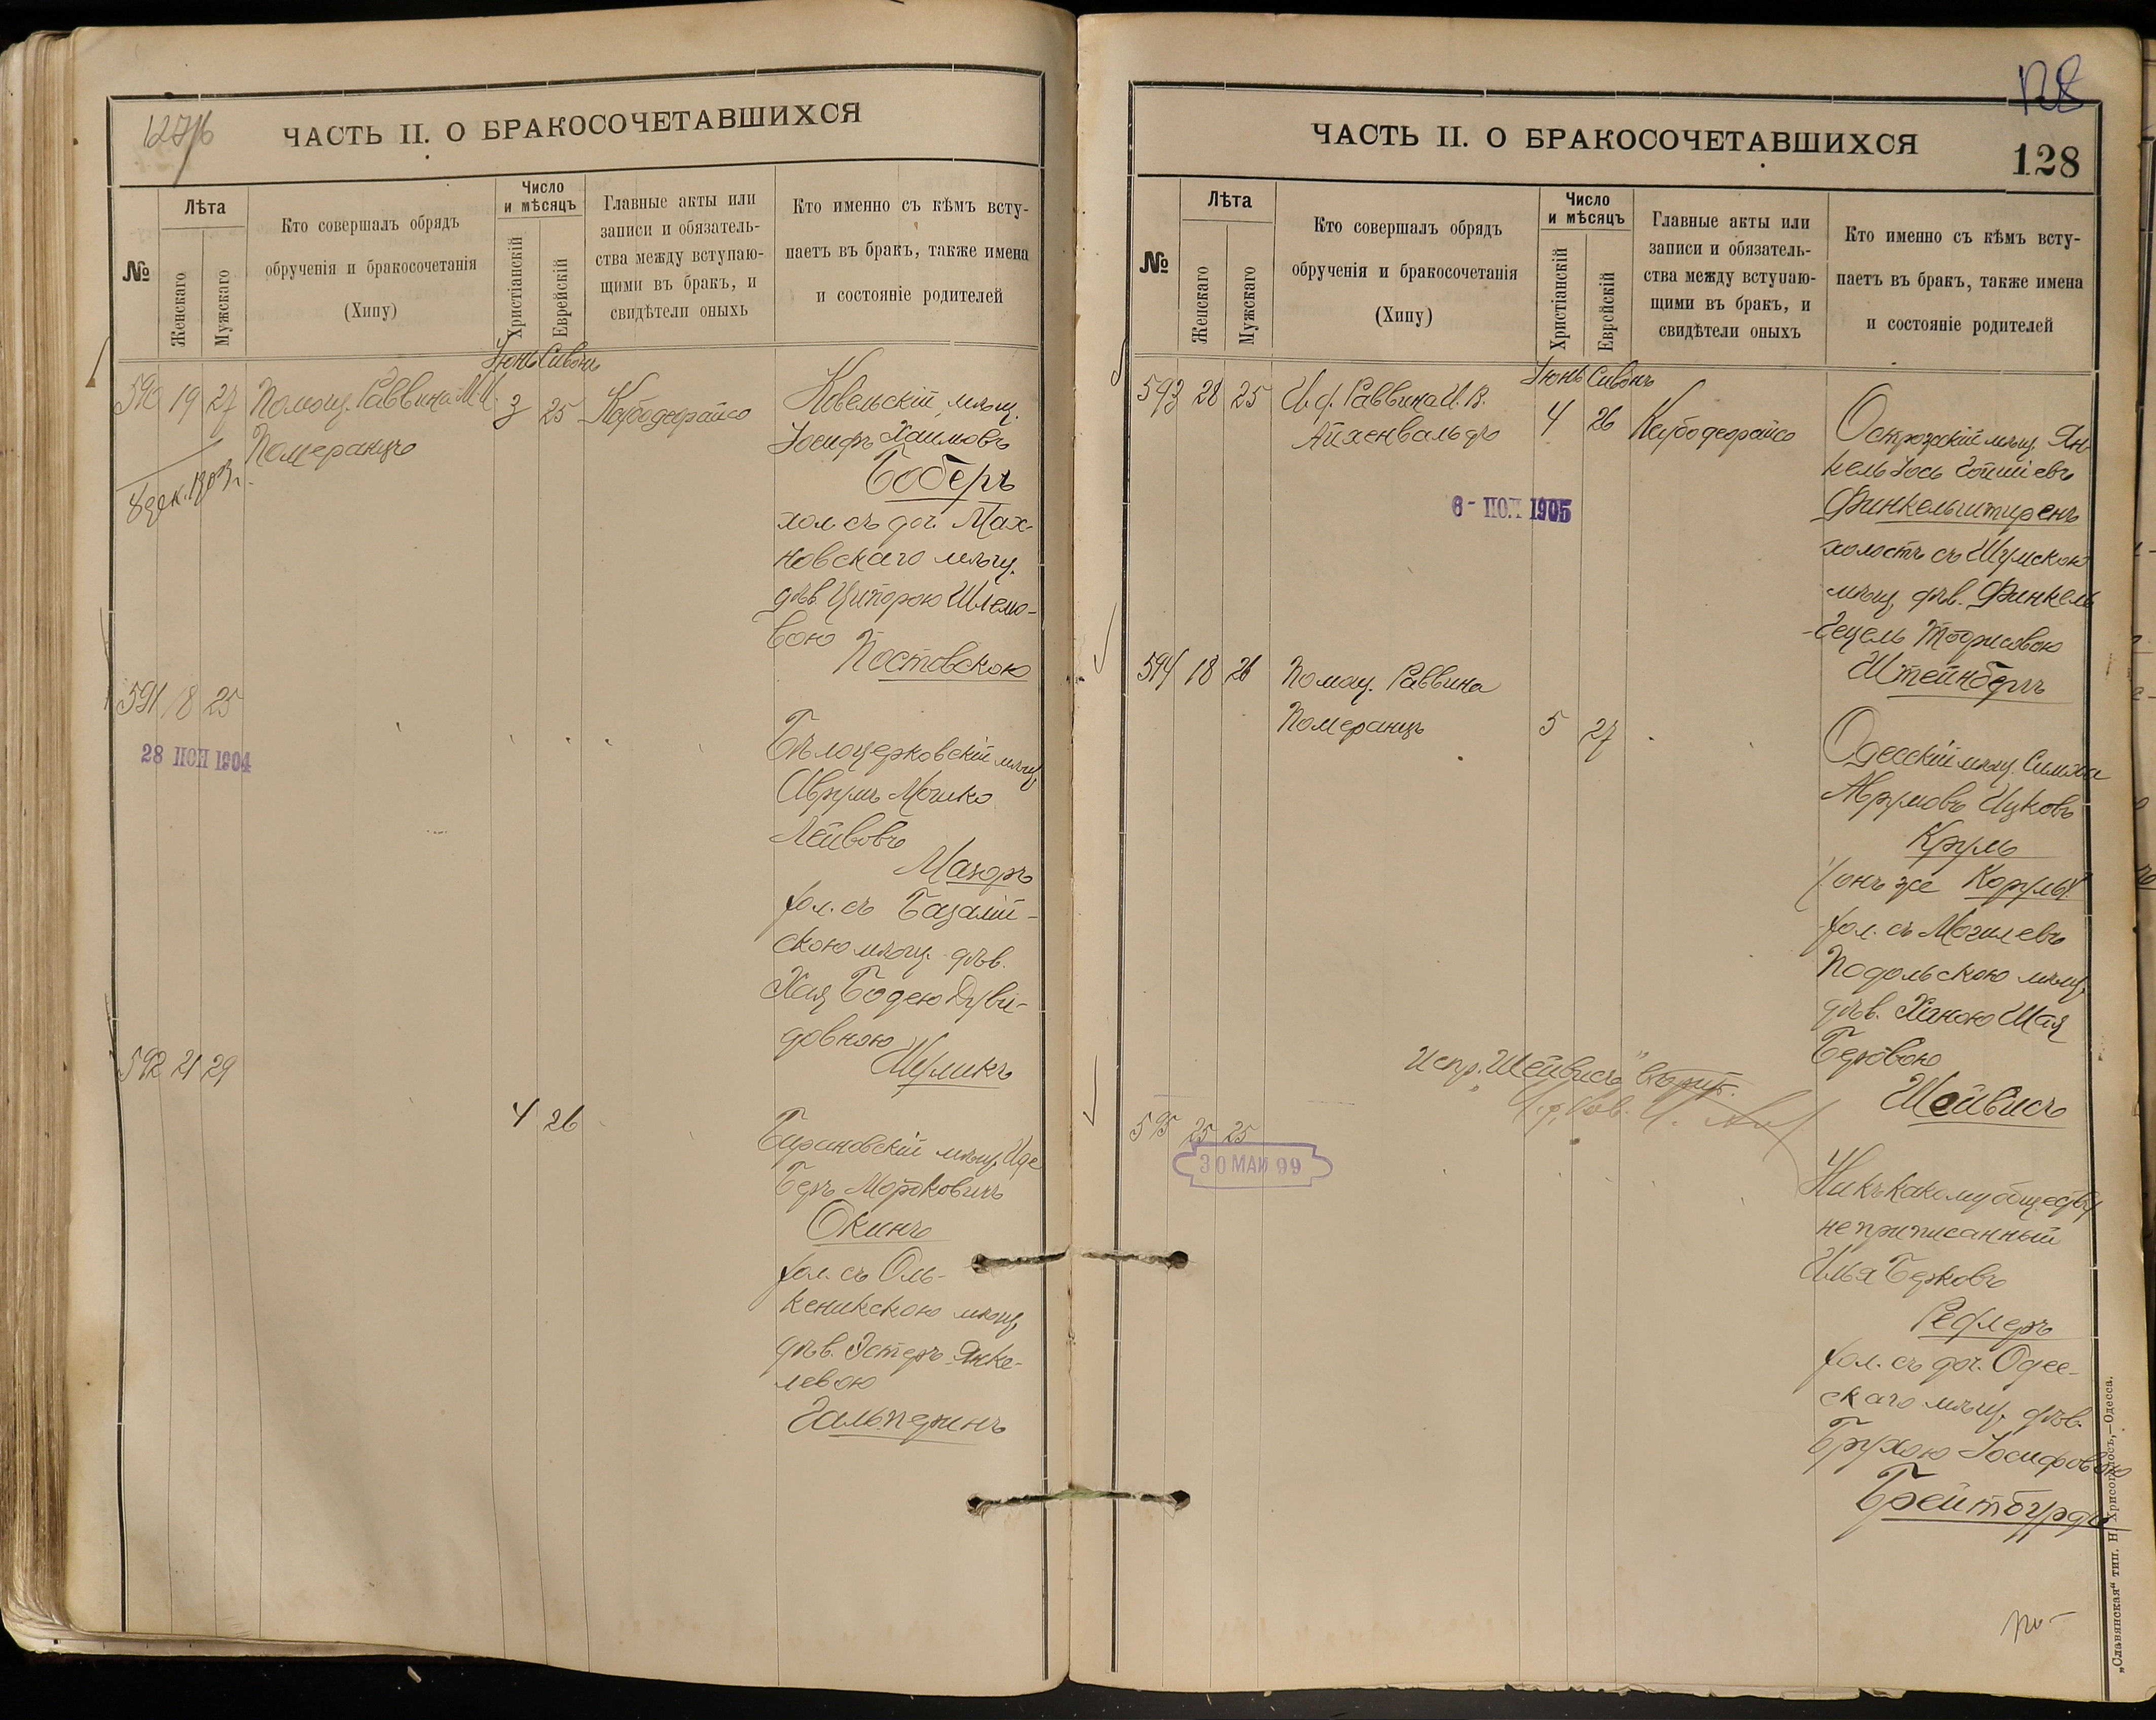 127/16
ЧАСТЬ II. О БРАКОСОЧЕТАВШИХСЯ
№
Лѣта
Женскаго
Мужскаго
Кто совершалъ обрядъ
обрученія и бракосочетанія
(Хипу)
Число
и мѣсяцъ
Христіанскій
Еврейскій
Главные акты или
записи и обязатель-
ства между вступаю-
щими въ бракъ, и
свидѣтели оныхъ
Кто именно съ кѣмъ всту-
паетъ въ бракъ, также имена
и состояніе родителей
Іюнь Сивонъ
590 19 27 Помощ. Раввина М.И.
Померанцъ
3 25 Кисбодеорайсо
8 дек. 1903 г.
Ковельскій мѣщ.
Іосифъ Хаимовъ
Боберъ
хол. съ доч. Мах-
новскаго мѣщ.
дѣв. Ципорою Шлемо-
вою
Постовскою
591 18 25
28 ІЮН 1904
Бѣлоцерковскій мѣщ.
Аврумъ Мошко
Лейбовъ
Мазоръ
хол. съ Базалій-
скою мѣщ. дѣв.
Хая Бодею Дуви-
довною
Шуликъ
592 21 29
4 26
Барановскій мѣщ. Иде
Беръ Мордковичъ
Окинъ
хол. съ Оль-
кеникскою мѣщ.
дѣв. Эстеръ Янке-
левою
Гальперинъ
128
ЧАСТЬ II. О БРАКОСОЧЕТАВШИХСЯ
128
№
Лѣта
Женскаго
Мужскаго
Кто совершалъ обрядъ
обрученія и бракосочетанія
(Хипу)
Число
и мѣсяцъ
Христіанскій
Еврейскій
Главные акты или
записи и обязатель-
ства между вступаю-
щими въ бракъ, и
свидѣтели оныхъ
Кто именно съ кѣмъ всту-
паетъ въ бракъ, также имена
и состояніе родителей
Іюнь Сивонъ
593 28 25 И. д. Раввина И. В.
Айхенвальдъ
4 26 Кисбодеорайсо
1905
Острожскій мѣщ. Ян-
кель Іось
Финкельштиренъ
холостъ съ Шумскою
мѣщ. дѣв. Финкель
-Гецель
Штейнбергъ
594 18 26 Помощ. Раввина
Померанцъ
5 27
Одесскій мѣщ. Симха
Аврумовъ Ицковъ
Круль
/онъ же Коруль/
хол. съ Могилевъ
Подольскою мѣщ.
дѣв. Ханою Шая
Беровою
Шейвисъ
Испр. „Шейвисъ"
595 25 25
30 МАЙ 99
Никъ какому обществу
не приписанный
Илья Берковъ
Рефлеръ
хол. съ доч. Одес-
скаго мѣщ. дѣв.
Брухою Іосифовою
Брейтбурдъ
„Славянская" тип. Н. Хрисогелосъ,—Одесса.